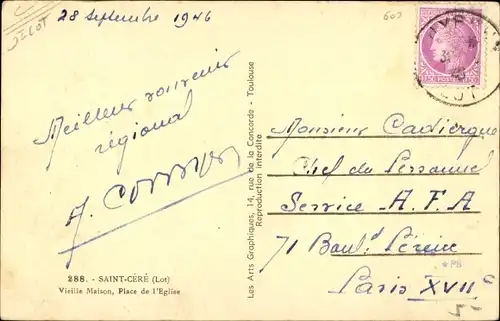 28 Septembre 1946
Meilleur souvenir
régional
288. - SAINT-CÉRÉ (Lot)
Vieille Maison, Place de l'Eglise
Les Arts Graphiques, 14, rue de la Concorde - Toulouse
Reproduction interdite
LOT
Monsieur Cadiergue
Chef du Personnel
Service A.F.A
71 Boul. Péreire
Paris XVIIe